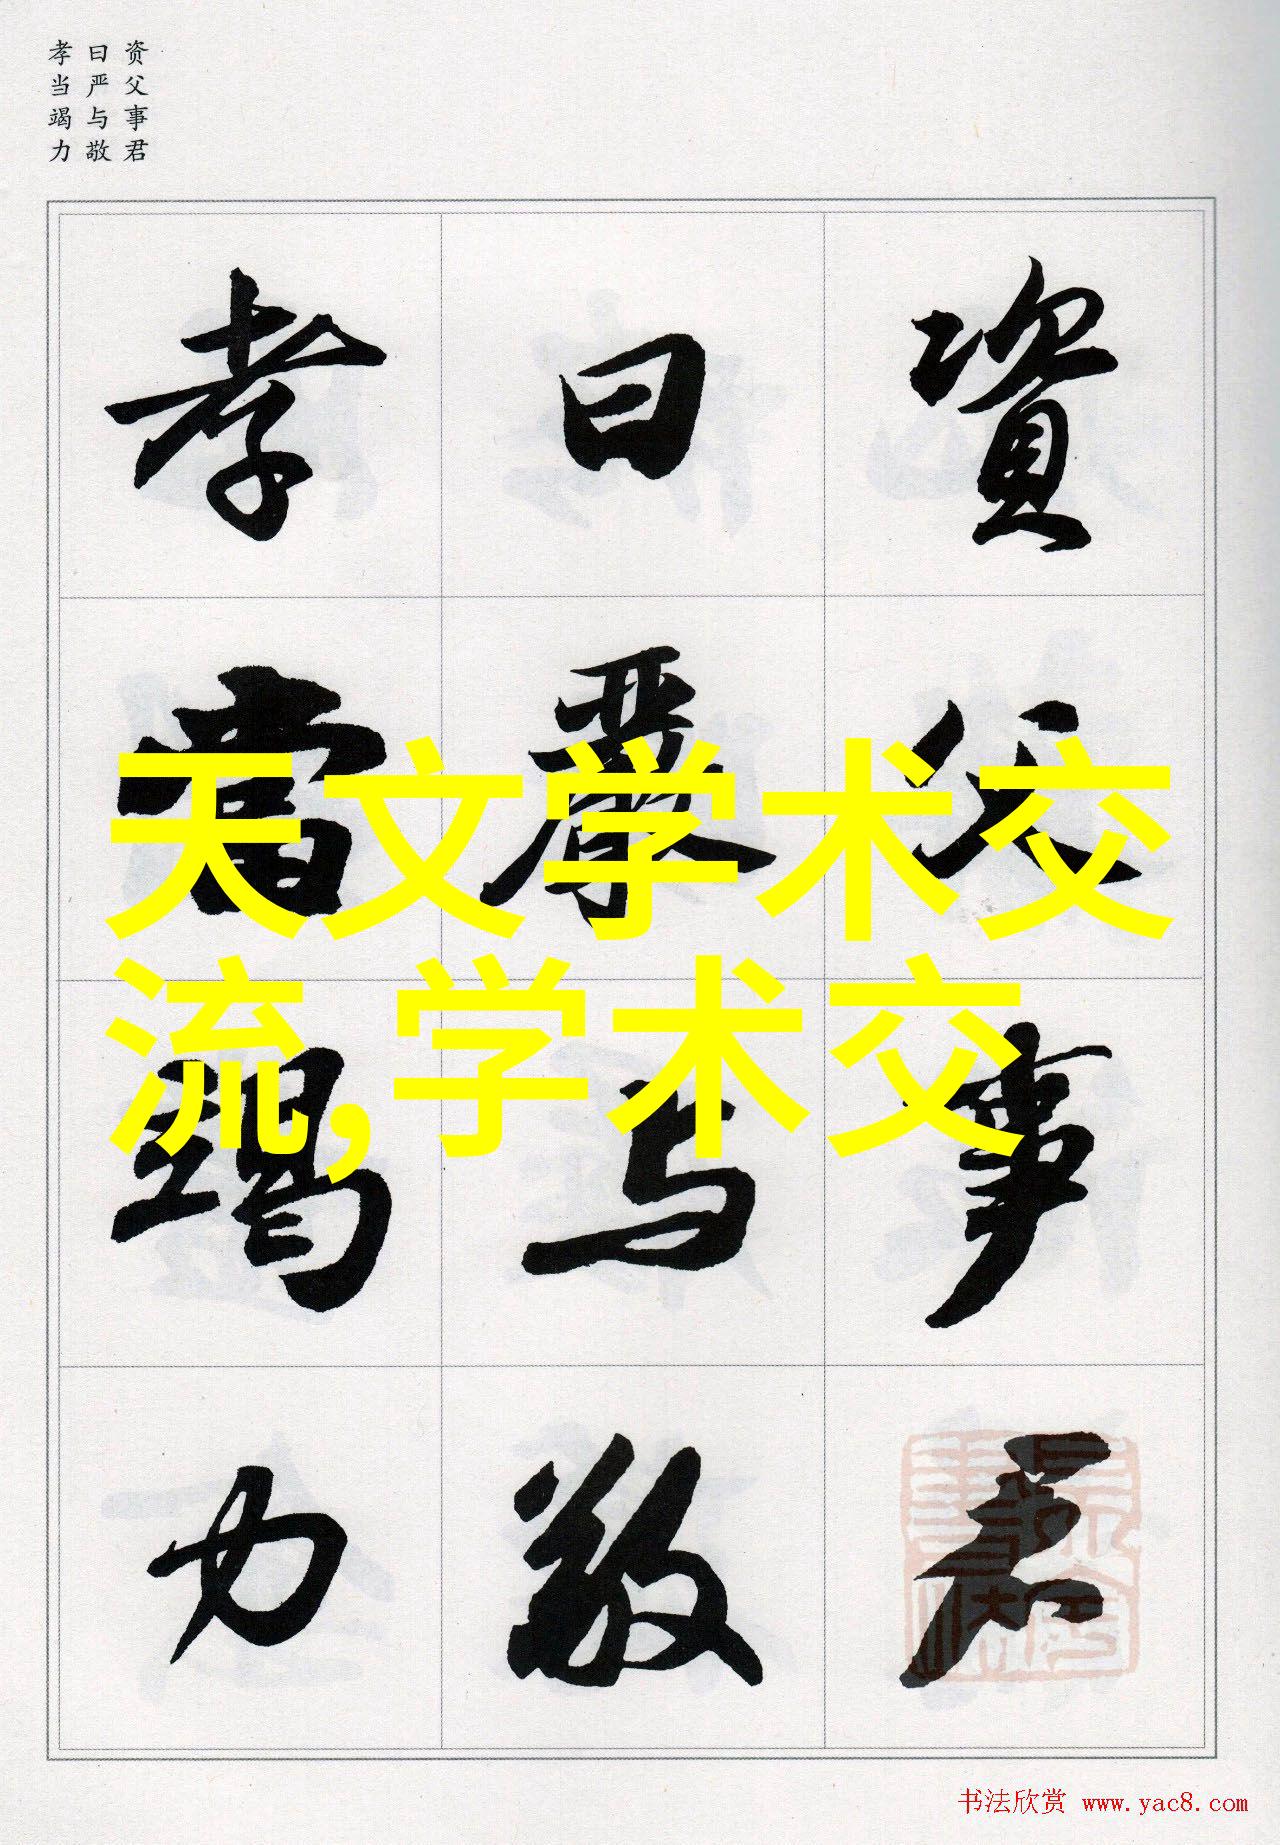 资父事君
曰严与敬
孝当竭力
資父事君
曰嚴与敬
孝當竭力
天文学术交
流,学术交
书法欣赏 www.yac8.com